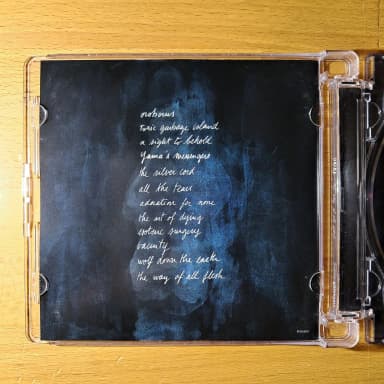 oroborus
toxic garbage island
a sight to behold
yama's messengers
the silver cord
all the tears
adoration for none
the art of dying
esoteric surgery
vacuity
wolf down the earth
the way of all flesh